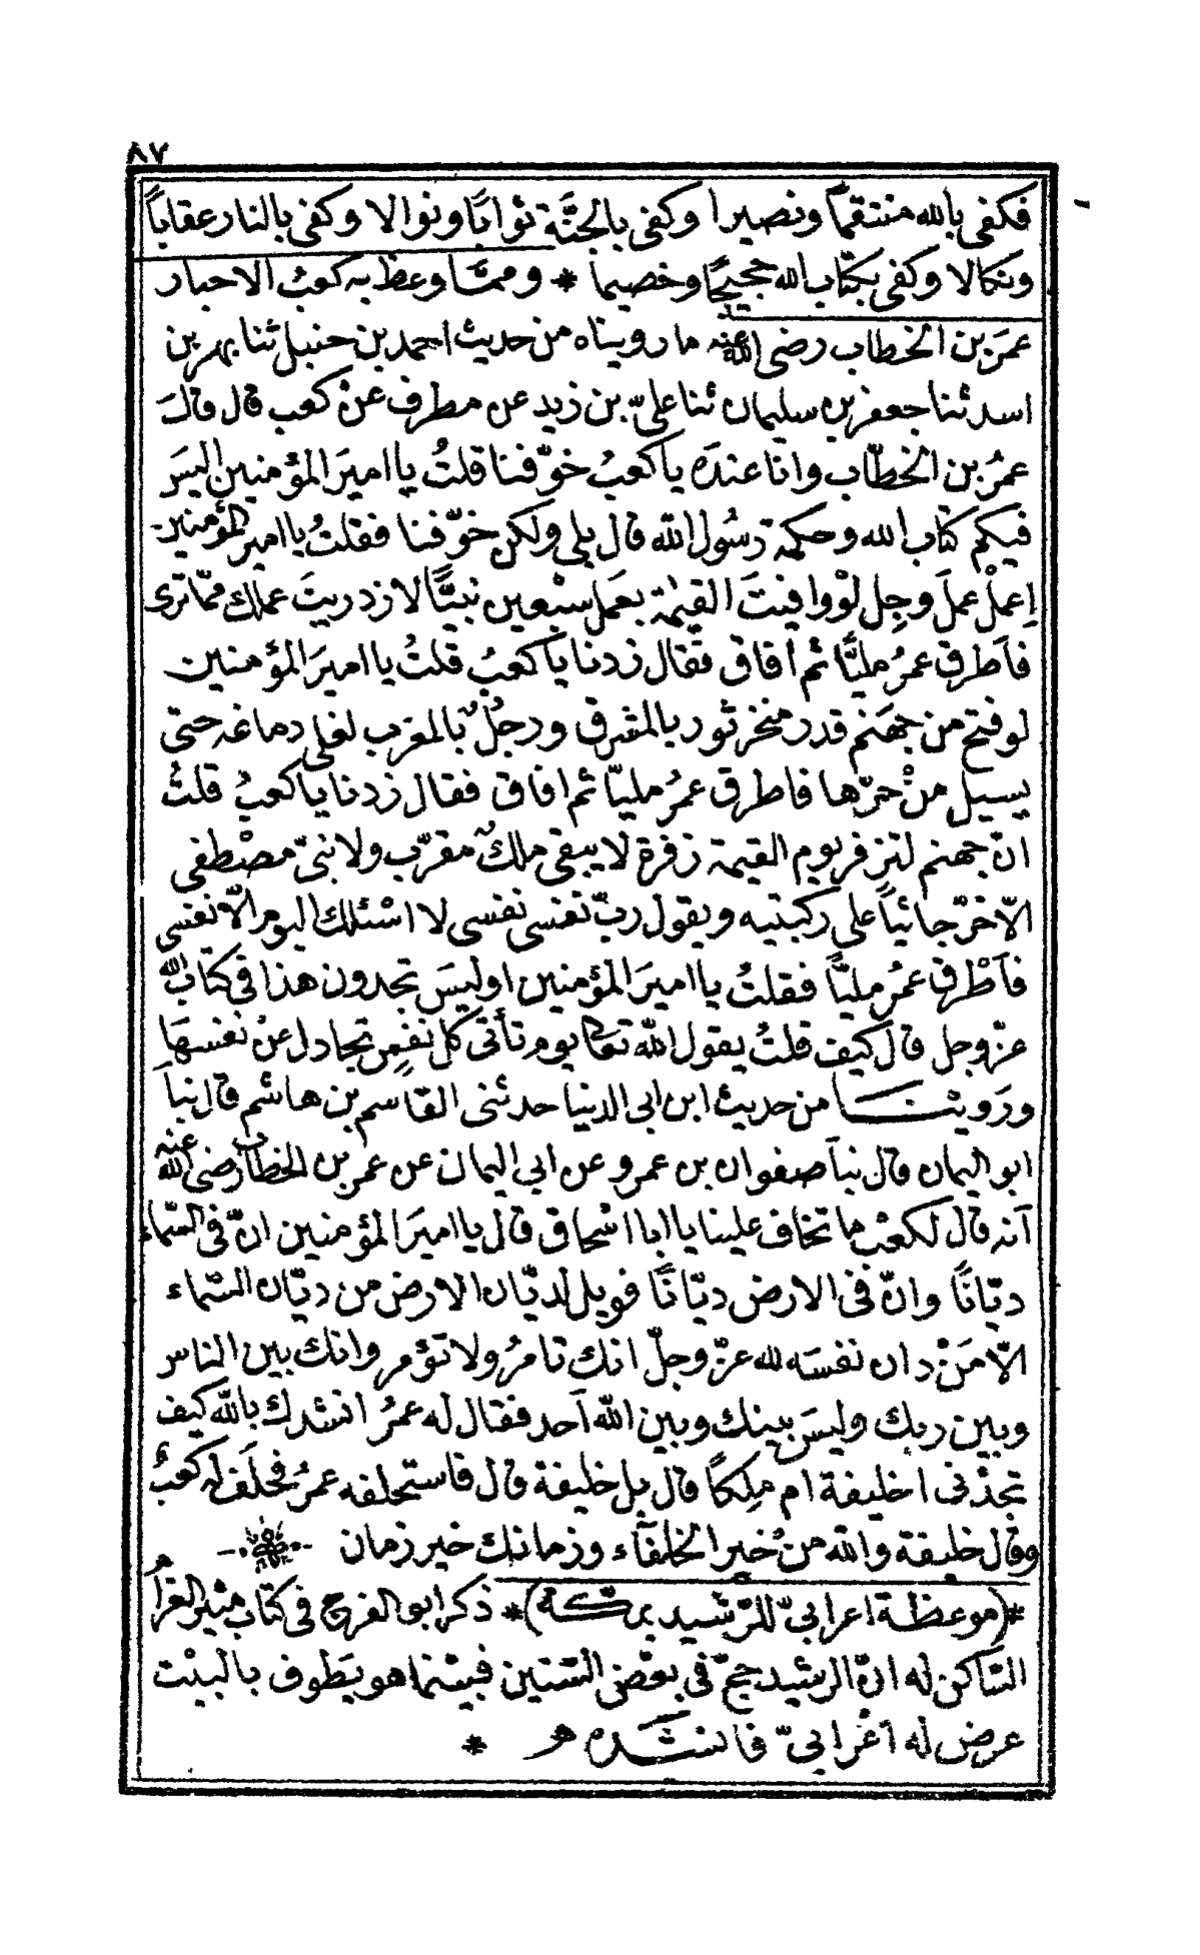 ٨٧
فكفى بالله منتقمًا ونصيرا وكفى بالجنَّة ثوابًا ونوالا وكفى بالنار عقاباً
ونكالا وكفى بكتاب الله حجيجًا وخصيما * وممَّا وعظ به كعب الاحبار
عمَر بن الخطاب رضى الله عنه ما رويناه من حديث احمد بن حنبل ثنا بهز بن
اسد ثنا جعفر بن سليمان ثنا علىّ بن زيد عن مطرف عنْ كعب قال قالَ
عمرُ بن الخطّاب وانا عندَه يا كعبُ خوّفنا قلتُ يا اميرَ المؤمنين اليسَ
فيكم كتاب الله وحكمة رسُول الله قال بلى ولكن خوّفنا فقلتُ يا امير المؤمنين
اِعملْ عملَ رجِل لوْ وافيتَ القيٰمة بعَمل سبْعين نبيًّا لازدريتَ عملك ممّا ترى
فاَطرق عمرُ مليًّا ثم أفاق فقال زدنا يا كعبُ قلتُ يا اميرَ المؤمنين
لو فتح من جهَنم قدر منخر ثور بالمشرق ورجُلٌ بالمغرب لغلى دماغه حتى
يسيل منْ حرّها فاطرق عمرُ مليّا ثم افاق فقال زدنا يا كعبُ قلتُ
انّ جهنم لتزفر يوم القيمة زفرة لا يبقى ملكٌ مقرّب ولا نبىّ مصْطفى
الّا خرّ جاثياً على ركبتيه ويقول ربّ نفسى نفسى لا اسْئلك اليوم الّا نفسى
فاَطْرق عمُر مليًّا فقلتُ يا اميرَ المؤمنين اوليسَ تجدون هذا فى كتاب الله
عزّ وجل قال كيف قلتُ يقول الله تعالى يوم تأتى كل نفسٍ تجادل عنْ نفسهَا
ورَويْنـا من حديث ابن ابى الدنيا حدثنى القاسم بن هاشم قال نبأ
ابو اليمان قال نبأ صفوان بن عمرو عن ابى اليمان عن عمر بن الخطاب رضى الله عنه
اَنه قال لكعْب ما تخاف علينا يا ابا اسْحاق قال يا اميرَ المؤمنين انّ فى السّماء
ديّانًا وانّ فى الارض ديّانًا فويل لديّان الارض من ديّان السّماء
الّا مَنْ دان نفسَه لله عزّ وجلّ انك تامرُ ولا تؤمر وانك بين الناس
وبين ربك وليسَ بينك وبين الله اَحد فقال له عمرُ انشدك بالله كيف
تجدْنى اخليفة ام ملِكاً قال بل خليفة قال فاستحلفه عمرُ فحلَف له كعبٌ
وقال خليفة والله منْ خير الخلفآء وزمانك خير زمان
*(موعظة اعرابىّ للرّشيد بمكة)* ذكر ابو الفرج فى كتاب مثير الغرام
السّاكن له انّ الرشيد حجّ فى بعْض السّنين فبيْنما هو يَطوف بالبيْت
عرض له اَعْرابىّ فانشَده *